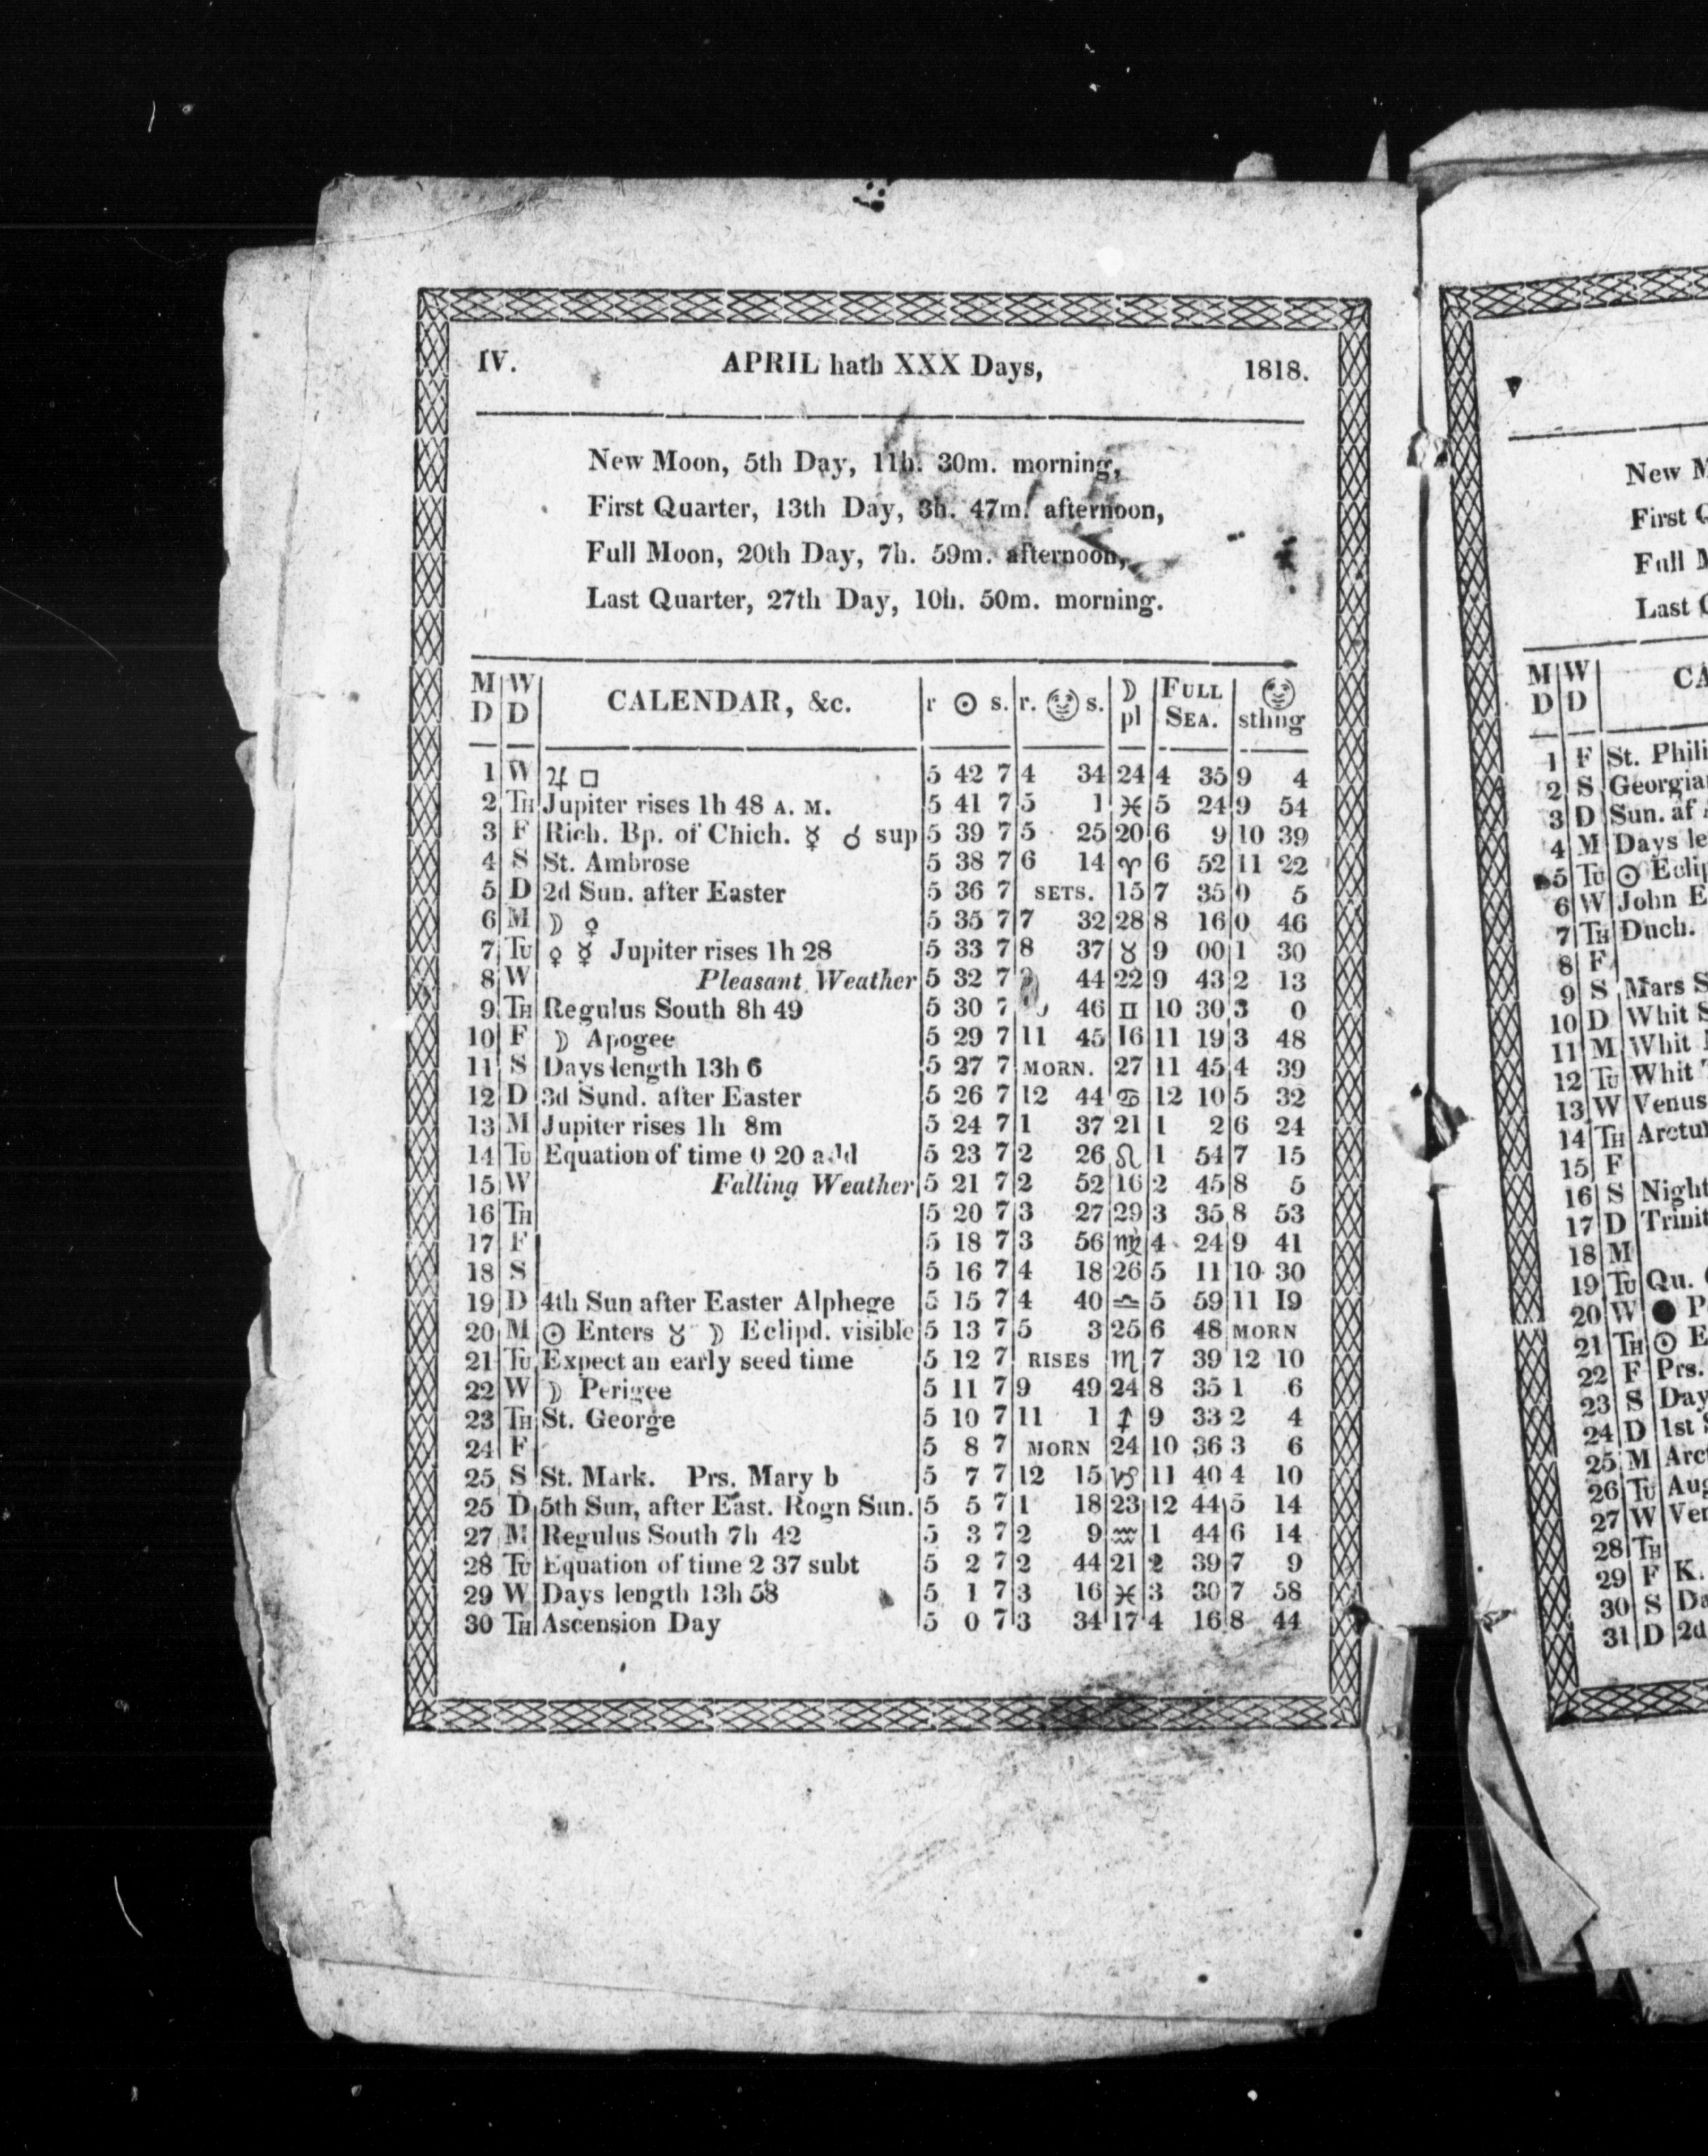 IV. APRIL hath XXX Days, 1818.
New Moon, 5th Day, 11h. 30m. morning,
First Quarter, 13th Day, 3h. 47m. afternoon,
Full Moon, 20th Day, 7h. 59m. afternoon,
Last Quarter, 27th Day, 10h. 50m. morning.
M D W D CALENDAR, &c. r ☉ s. r. s. ☽ pl FULL SEA. sthng
1 W ♃ □ 5 42 7 4 34 24 4 35 9 4
2 TH Jupiter rises 1h 48 A. M. 5 41 7 5 1 ♓ 5 24 9 54
3 F Rich. Bp. of Chich. ☿ ☌ sup 5 39 7 5 25 20 6 9 10 39
4 S St. Ambrose 5 38 7 6 14 ♈ 6 52 11 22
5 D 2d Sun. after Easter 5 36 7 SETS. 15 7 35 0 5
6 M ☽ ♀ 5 35 7 7 32 28 8 16 0 46
7 TU ♀ ☿ Jupiter rises 1h 28 5 33 7 8 37 ♉ 9 00 1 30
8 W Pleasant Weather 5 32 7 44 22 9 43 2 13
9 TH Regulus South 8h 49 5 30 7 46 ♊ 10 30 3 0
10 F ☽ Apogee 5 29 7 11 45 16 11 19 3 48
11 S Days length 13h 6 5 27 7 MORN. 27 11 45 4 39
12 D 3d Sund. after Easter 5 26 7 12 44 ♋ 12 10 5 32
13 M Jupiter rises 1h 8m 5 24 7 1 37 21 1 2 6 24
14 TU Equation of time 0 20 add 5 23 7 2 26 ♌ 1 54 7 15
15 W Falling Weather 5 21 7 2 52 16 2 45 8 5
16 TH 5 20 7 3 27 29 3 35 8 53
17 F 5 18 7 3 56 ♍ 4 24 9 41
18 S 5 16 7 4 18 26 5 11 10 30
19 D 4th Sun after Easter Alphege 5 15 7 4 40 ♎ 5 59 11 19
20 M ☉ Enters ♉ ☽ Eclipd. visible 5 13 7 5 3 25 6 48 MORN
21 TU Expect an early seed time 5 12 7 RISES ♏ 7 39 12 10
22 W ☽ Perigee 5 11 7 9 49 24 8 35 1 6
23 TH St. George 5 10 7 11 1 ♐ 9 33 2 4
24 F 5 8 7 MORN 24 10 36 3 6
25 S St. Mark. Prs. Mary b 5 7 7 12 15 ♑ 11 40 4 10
25 D 5th Sun, after East. Rogn Sun. 5 5 7 1 18 23 12 44 5 14
27 M Regulus South 7h 42 5 3 7 2 9 ♒ 1 44 6 14
28 TU Equation of time 2 37 subt 5 2 7 2 44 21 2 39 7 9
29 W Days length 13h 58 5 1 7 3 16 ♓ 3 30 7 58
30 TH Ascension Day 5 0 7 3 34 17 4 16 8 44
New
First
Full
Last
M D W D
1 F St. Phili
2 S Georgia
3 D Sun. af
4 M Days le
5 TU ☉ Eclip
6 W John E
7 TH Duch.
8 F
9 S Mars S
10 D Whit S
11 M Whit
12 TU Whit
13 W Venus
14 TH Arctu
15 F
16 S Night
17 D Trinit
18 M
19 TU Qu.
20 W ● P
21 TH ☉ E
22 F Prs.
23 S Day
24 D 1st
25 M Arc
26 TU Aug
27 W Ven
28 TH
29 F K.
30 S Da
31 D 2d